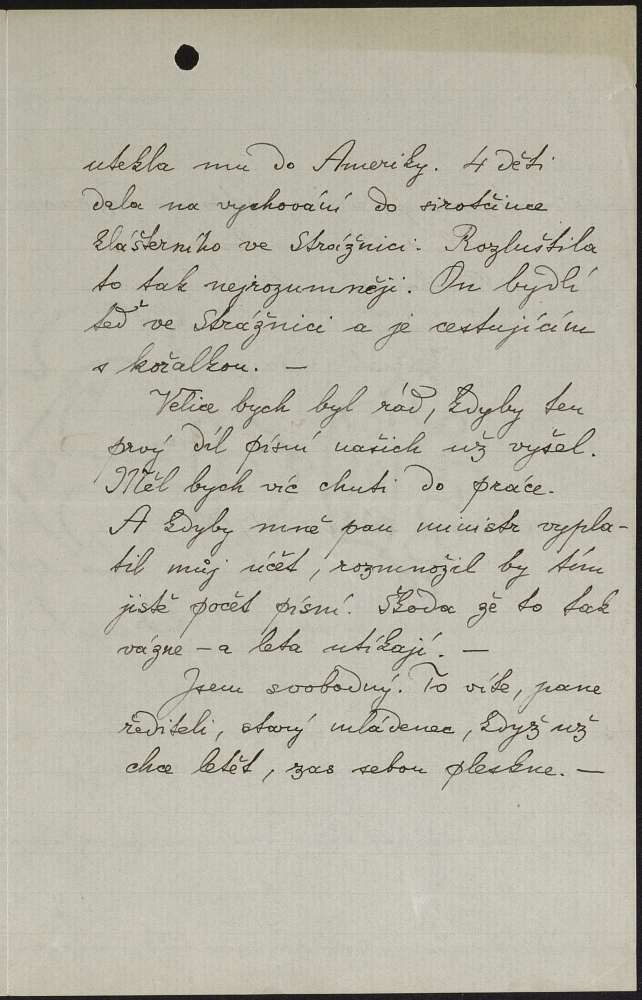 utekla mu do Ameriky. 4 děti
dala na vychování do sirotčince
klášterního ve Strážnici. Rozluštila
to tak nejrozumněji. On bydlí
teď ve Strážnici a je cestujícím
s kořalkou. —
Velice bych byl rád, kdyby ten
prvý díl písní našich už vyšel.
Měl bych víc chuti do práce.
A kdyby mně pan ministr vypla-
til můj účet, rozmnožil by tím
jistě počet písní. Škoda že to tak
vázne – a léta utíkají. —
Jsem svobodný. To víte, pane
řediteli, starý mládenec, když už
chce letět, zas sebou pleskne. —